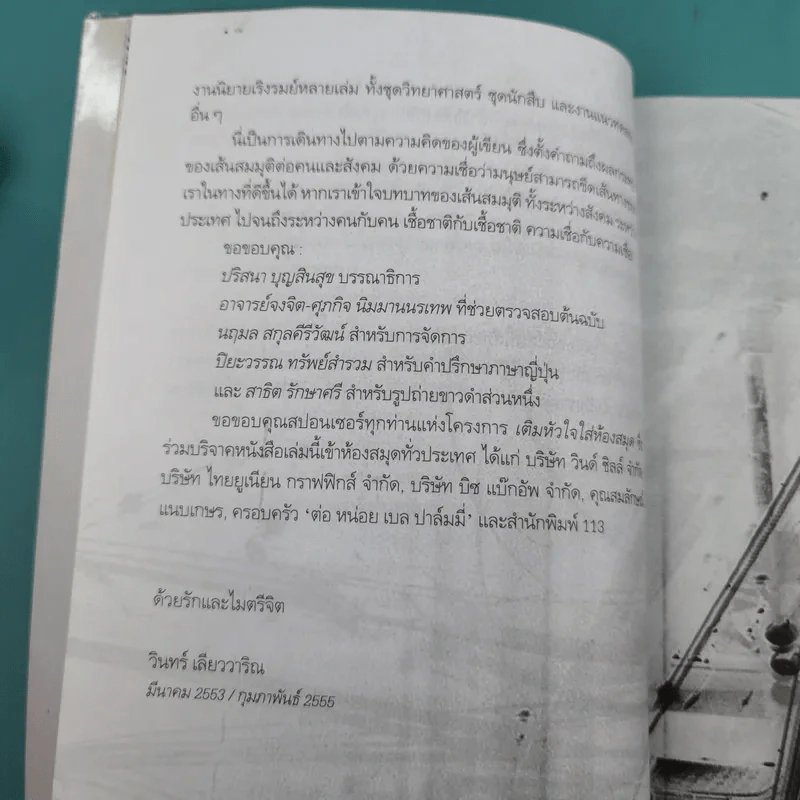 งานนิยายเริงรมย์หลายเล่ม ทั้งชุดวิทยาศาสตร์ ชุดนักสืบ และงานแนวทดลอง
อื่น ๆ
นี่เป็นการเดินทางไปตามความคิดของผู้เขียน ซึ่งตั้งคำถามถึง
ของเส้นสมมุติต่อคนและสังคม ด้วยความเชื่อว่ามนุษย์สามารถขีดเส้นทาง
เราในทางที่ดีขึ้นได้ หากเราเข้าใจบทบาทของเส้นสมมุติ ทั้งระหว่างสังคม
ประเทศ ไปจนถึงระหว่างคนกับคน เชื้อชาติกับเชื้อชาติ ความเชื่อกับความเชื่อ
ขอขอบคุณ :
ปริสนา บุญสินสุข บรรณาธิการ
อาจารย์จงจิต-ศุภกิจ นิมมานนรเทพ ที่ช่วยตรวจสอบต้นฉบับ
นฤมล สกุลคีรีวัฒน์ สำหรับการจัดการ
ปิยะวรรณ ทรัพย์สำรวม สำหรับคำปรึกษาภาษาญี่ปุ่น
และ สาธิต รักษาศรี สำหรับรูปถ่ายขาวดำส่วนหนึ่ง
ขอขอบคุณสปอนเซอร์ทุกท่านแห่งโครงการ เติมหัวใจใส่ห้องสมุด
ร่วมบริจาคหนังสือเล่มนี้เข้าห้องสมุดทั่วประเทศ ได้แก่ บริษัท วินด์ ชิลล์ จำกัด,
บริษัท ไทยยูเนียน กราฟฟิกส์ จำกัด, บริษัท บิซ แบ๊กอัพ จำกัด, คุณสมลักษณ์
แนบเกษร, ครอบครัว ‘ต่อ หน่อย เบล ปาล์มมี่’ และสำนักพิมพ์ 113
ด้วยรักและไมตรีจิต
วินทร์ เลียววาริณ
มีนาคม 2553 / กุมภาพันธ์ 2555